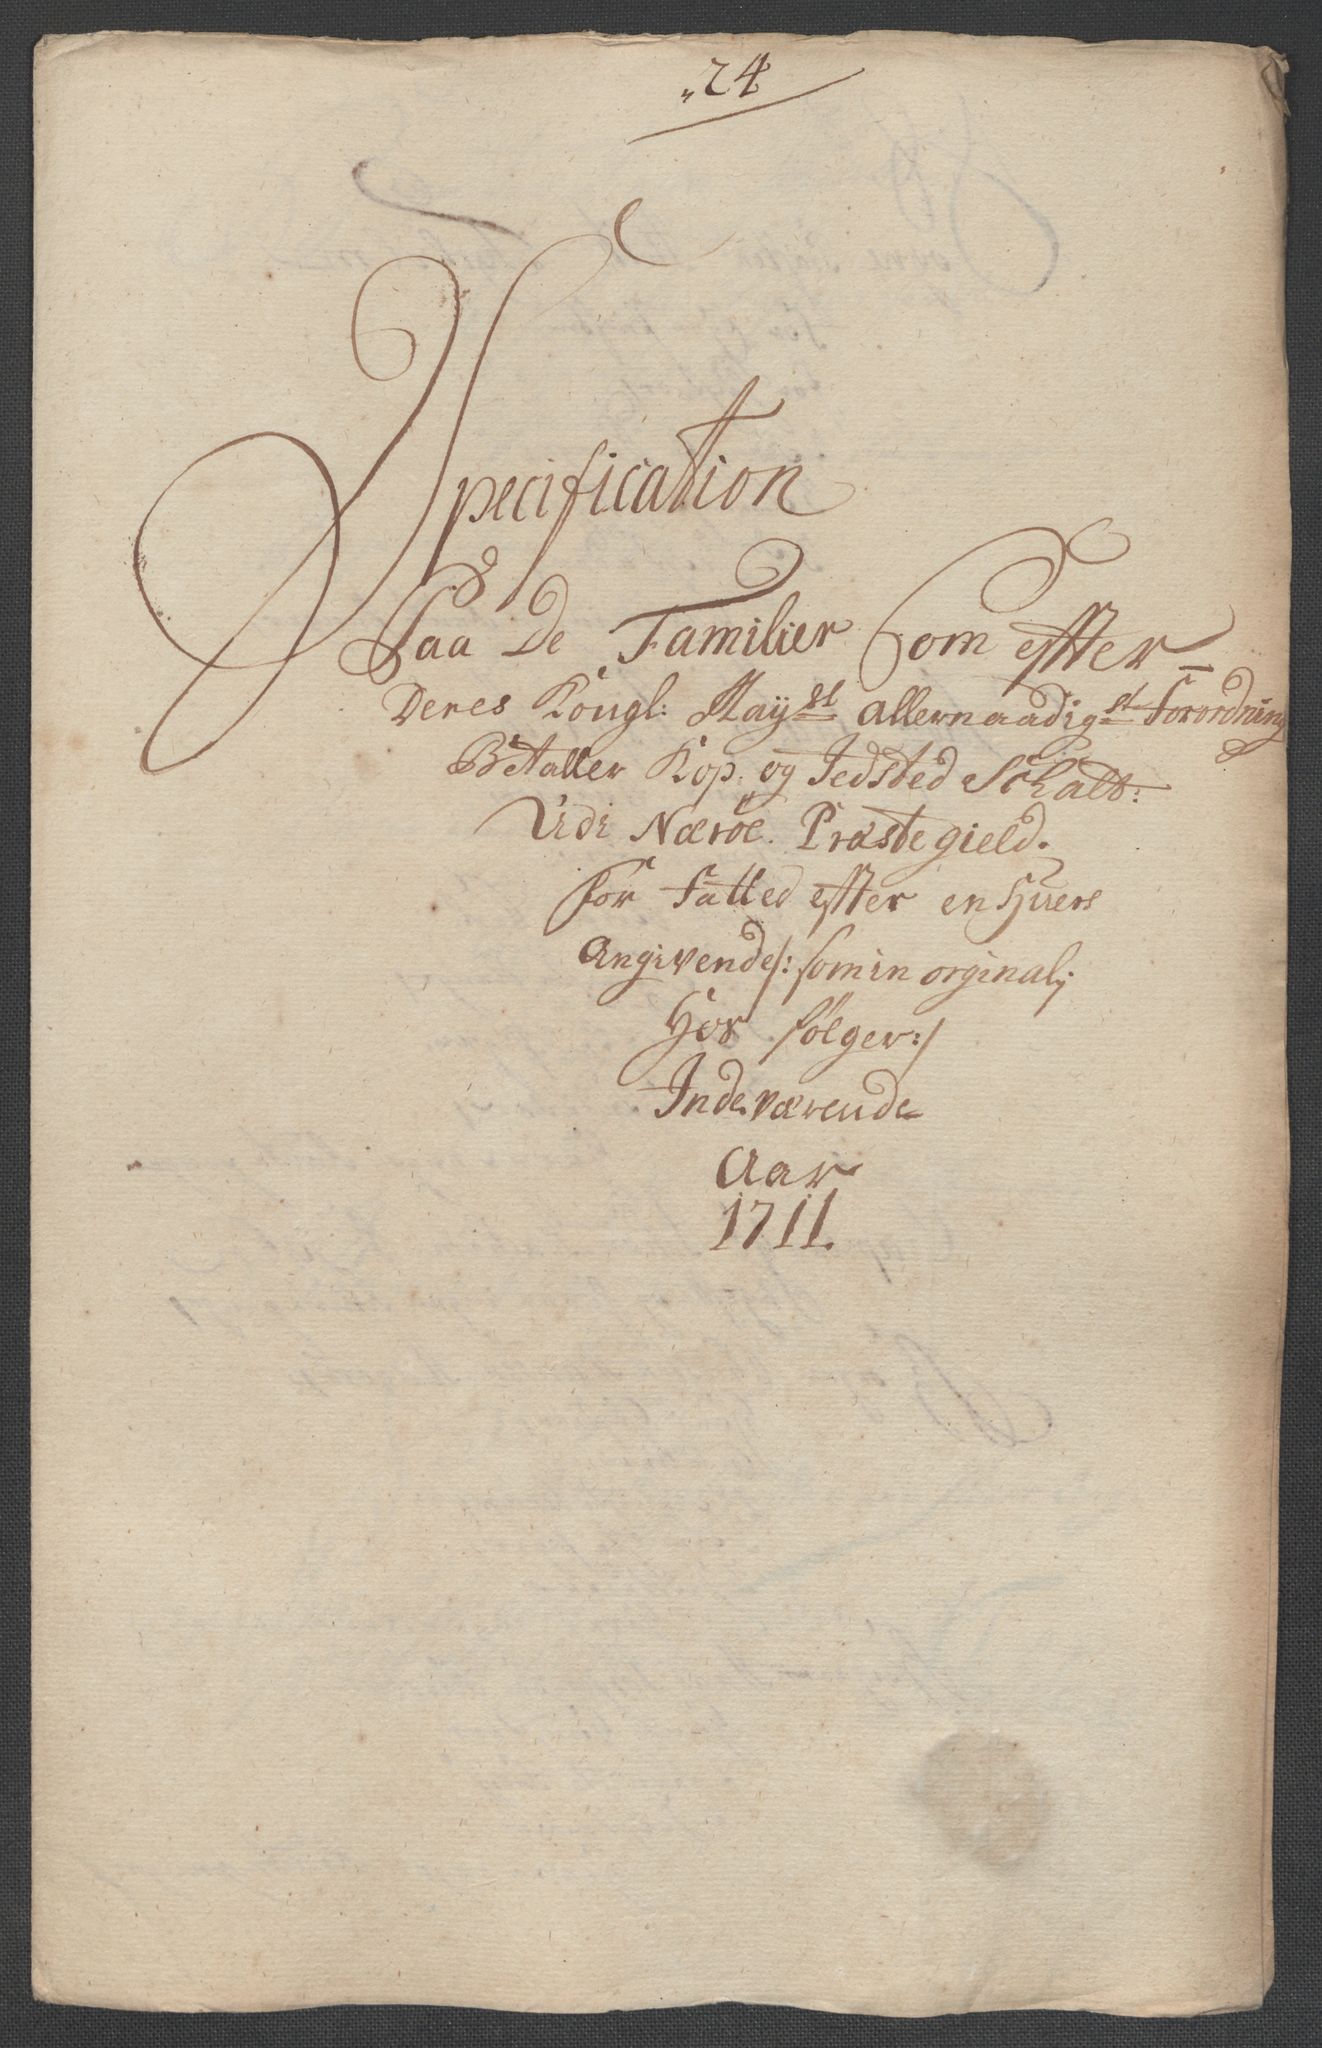 "24
Specification
Paa De Familier Som effter
Deres Kongl: May:st allernaadigst Forordning
Betaller Kop. og Ildsted Schatt:
Udi Nærøe. Præstegield.
for fatted effter en Huers
Angivende /: som in orginalj
Hos følger :/
Indeværende
Aar
1711.